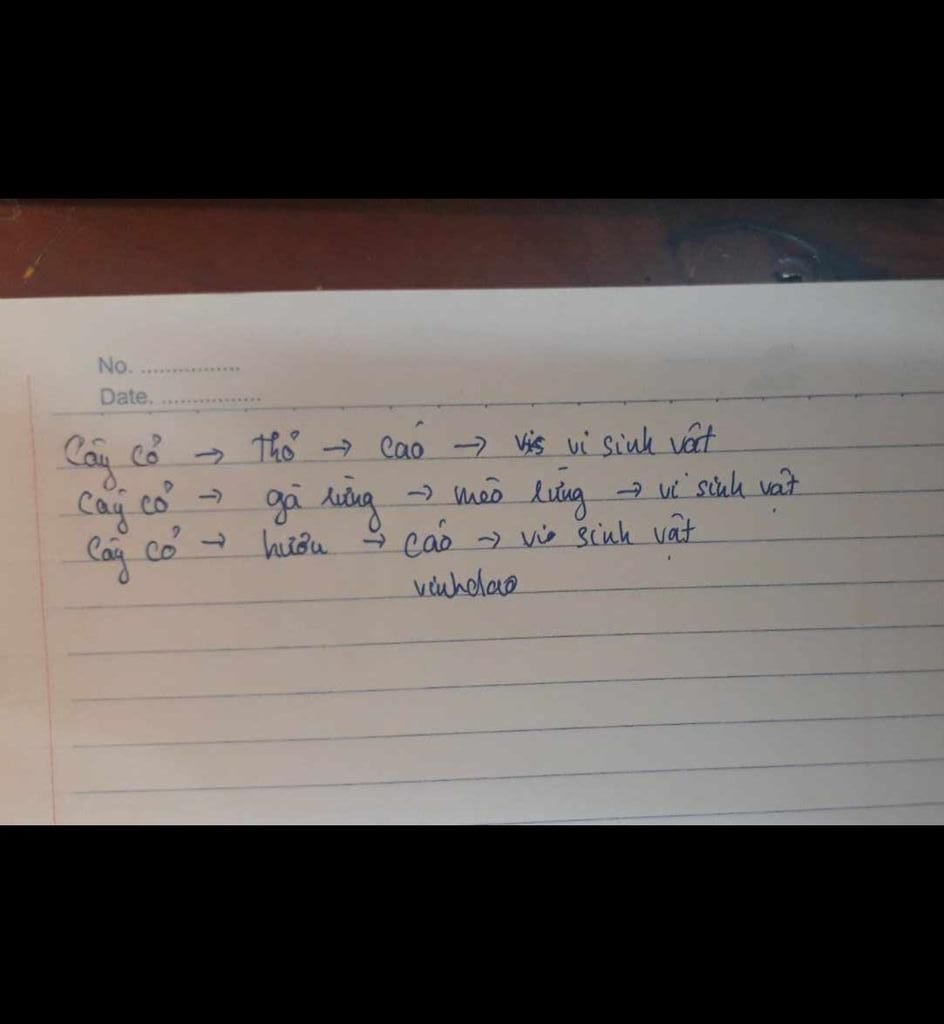 No. ................
Date. ................
Cây cỏ → thỏ → cáo → vis vi sinh vật
Cây cỏ → gà rừng → mèo rừng → vi sinh vật
Cây cỏ → hươu → cáo → vi sinh vật
vinhdao